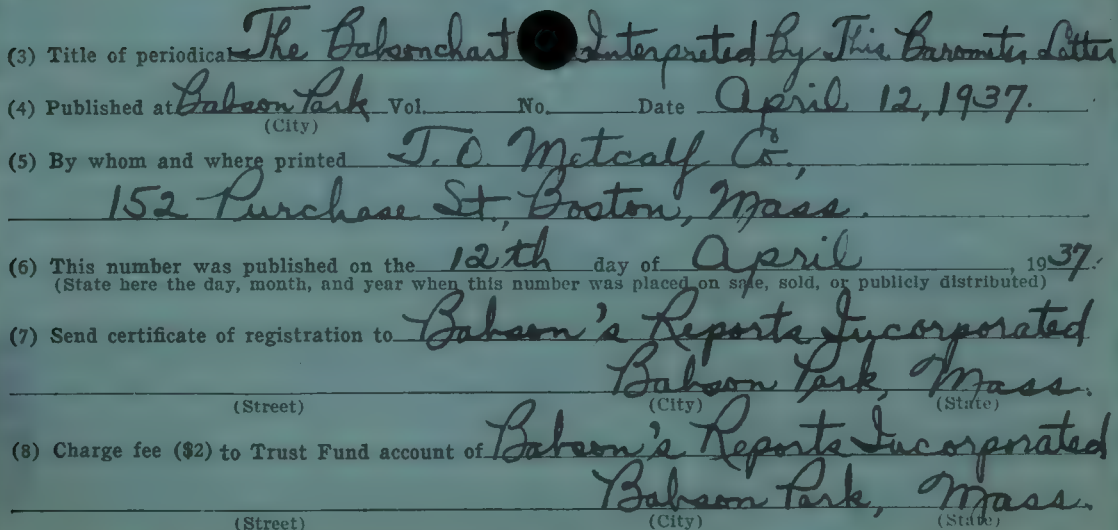 (3) Title of periodical The Babsonchart Interpreted By This Barometer Letter
(4) Published at Babson Park Vol. No. Date April 12, 1937.
(City)
(5) By whom and where printed T. O. Metcalf Co.,
152 Purchase St., Boston, Mass.
(6) This number was published on the 12th day of April, 1937.
(State here the day, month, and year when this number was placed on sale, sold, or publicly distributed)
(7) Send certificate of registration to Babson's Reports Incorporated
Babson Park, Mass.
(Street) (City) (State)
(8) Charge fee ($2) to Trust Fund account of Babson's Reports Incorporated
Babson Park, Mass.
(Street) (City) (State)